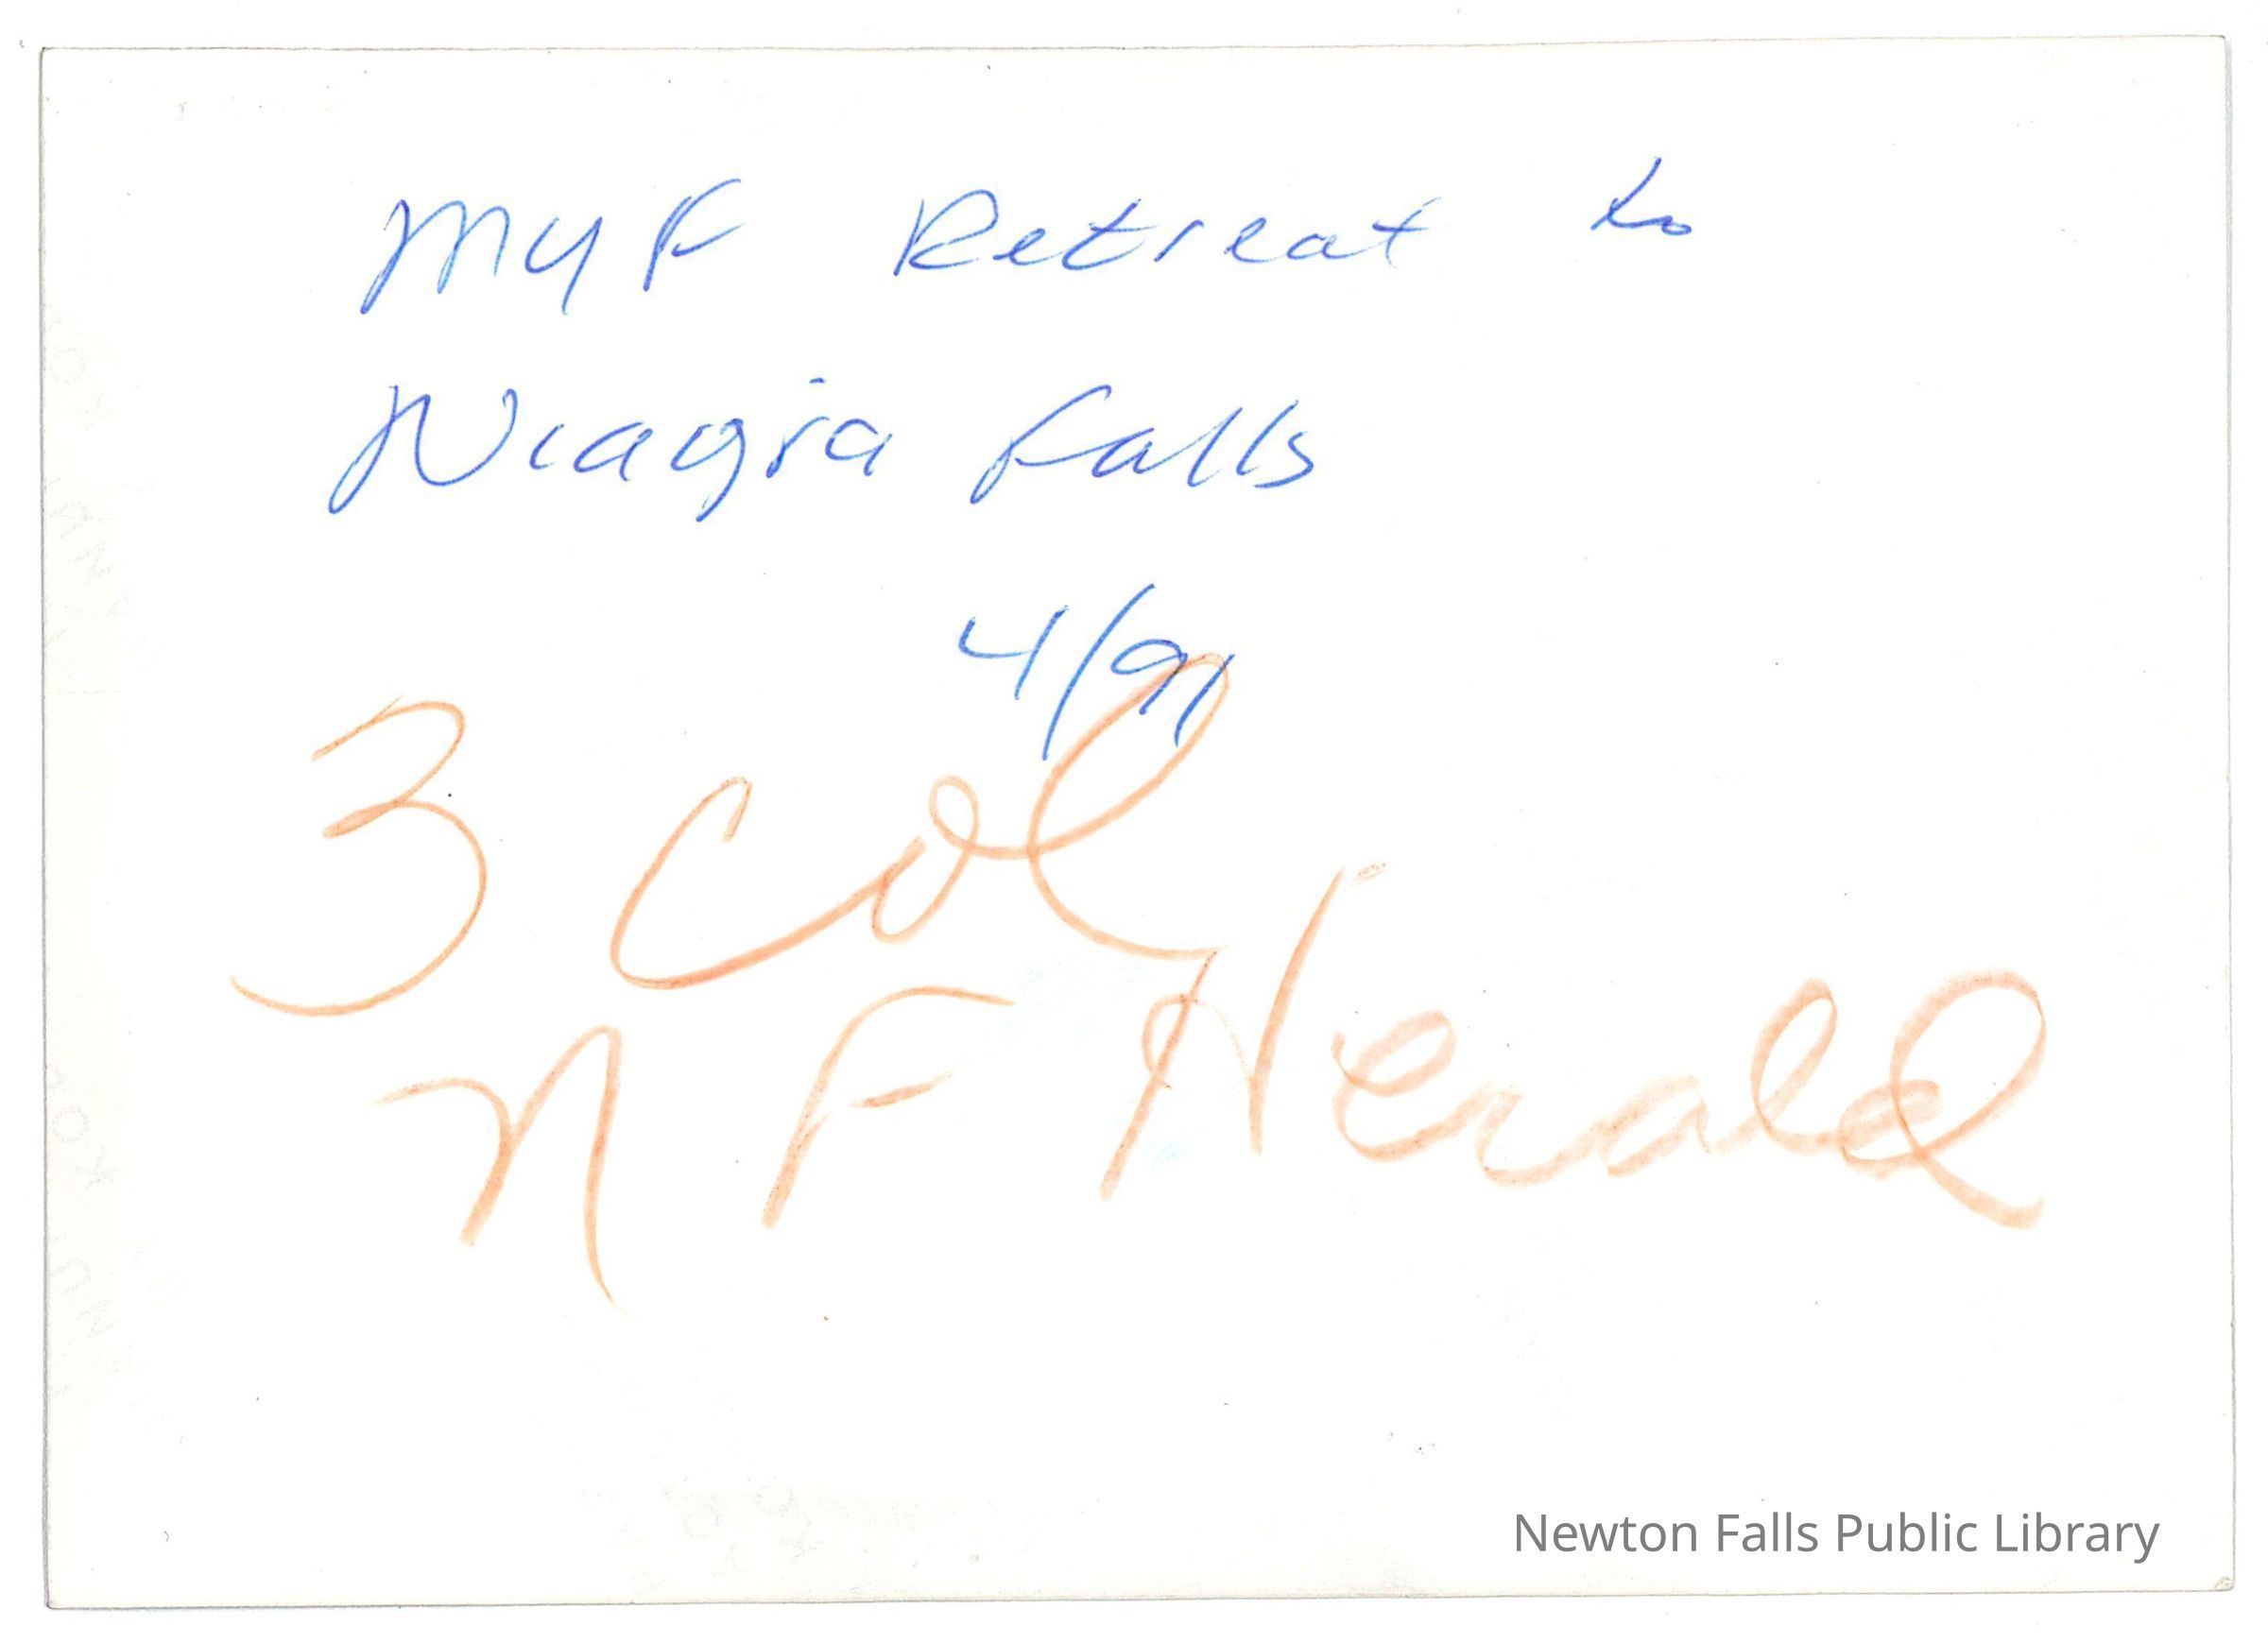 MYF Retreat to
Niagra Falls
4/91
3 Col
NF Herald
Newton Falls Public Library